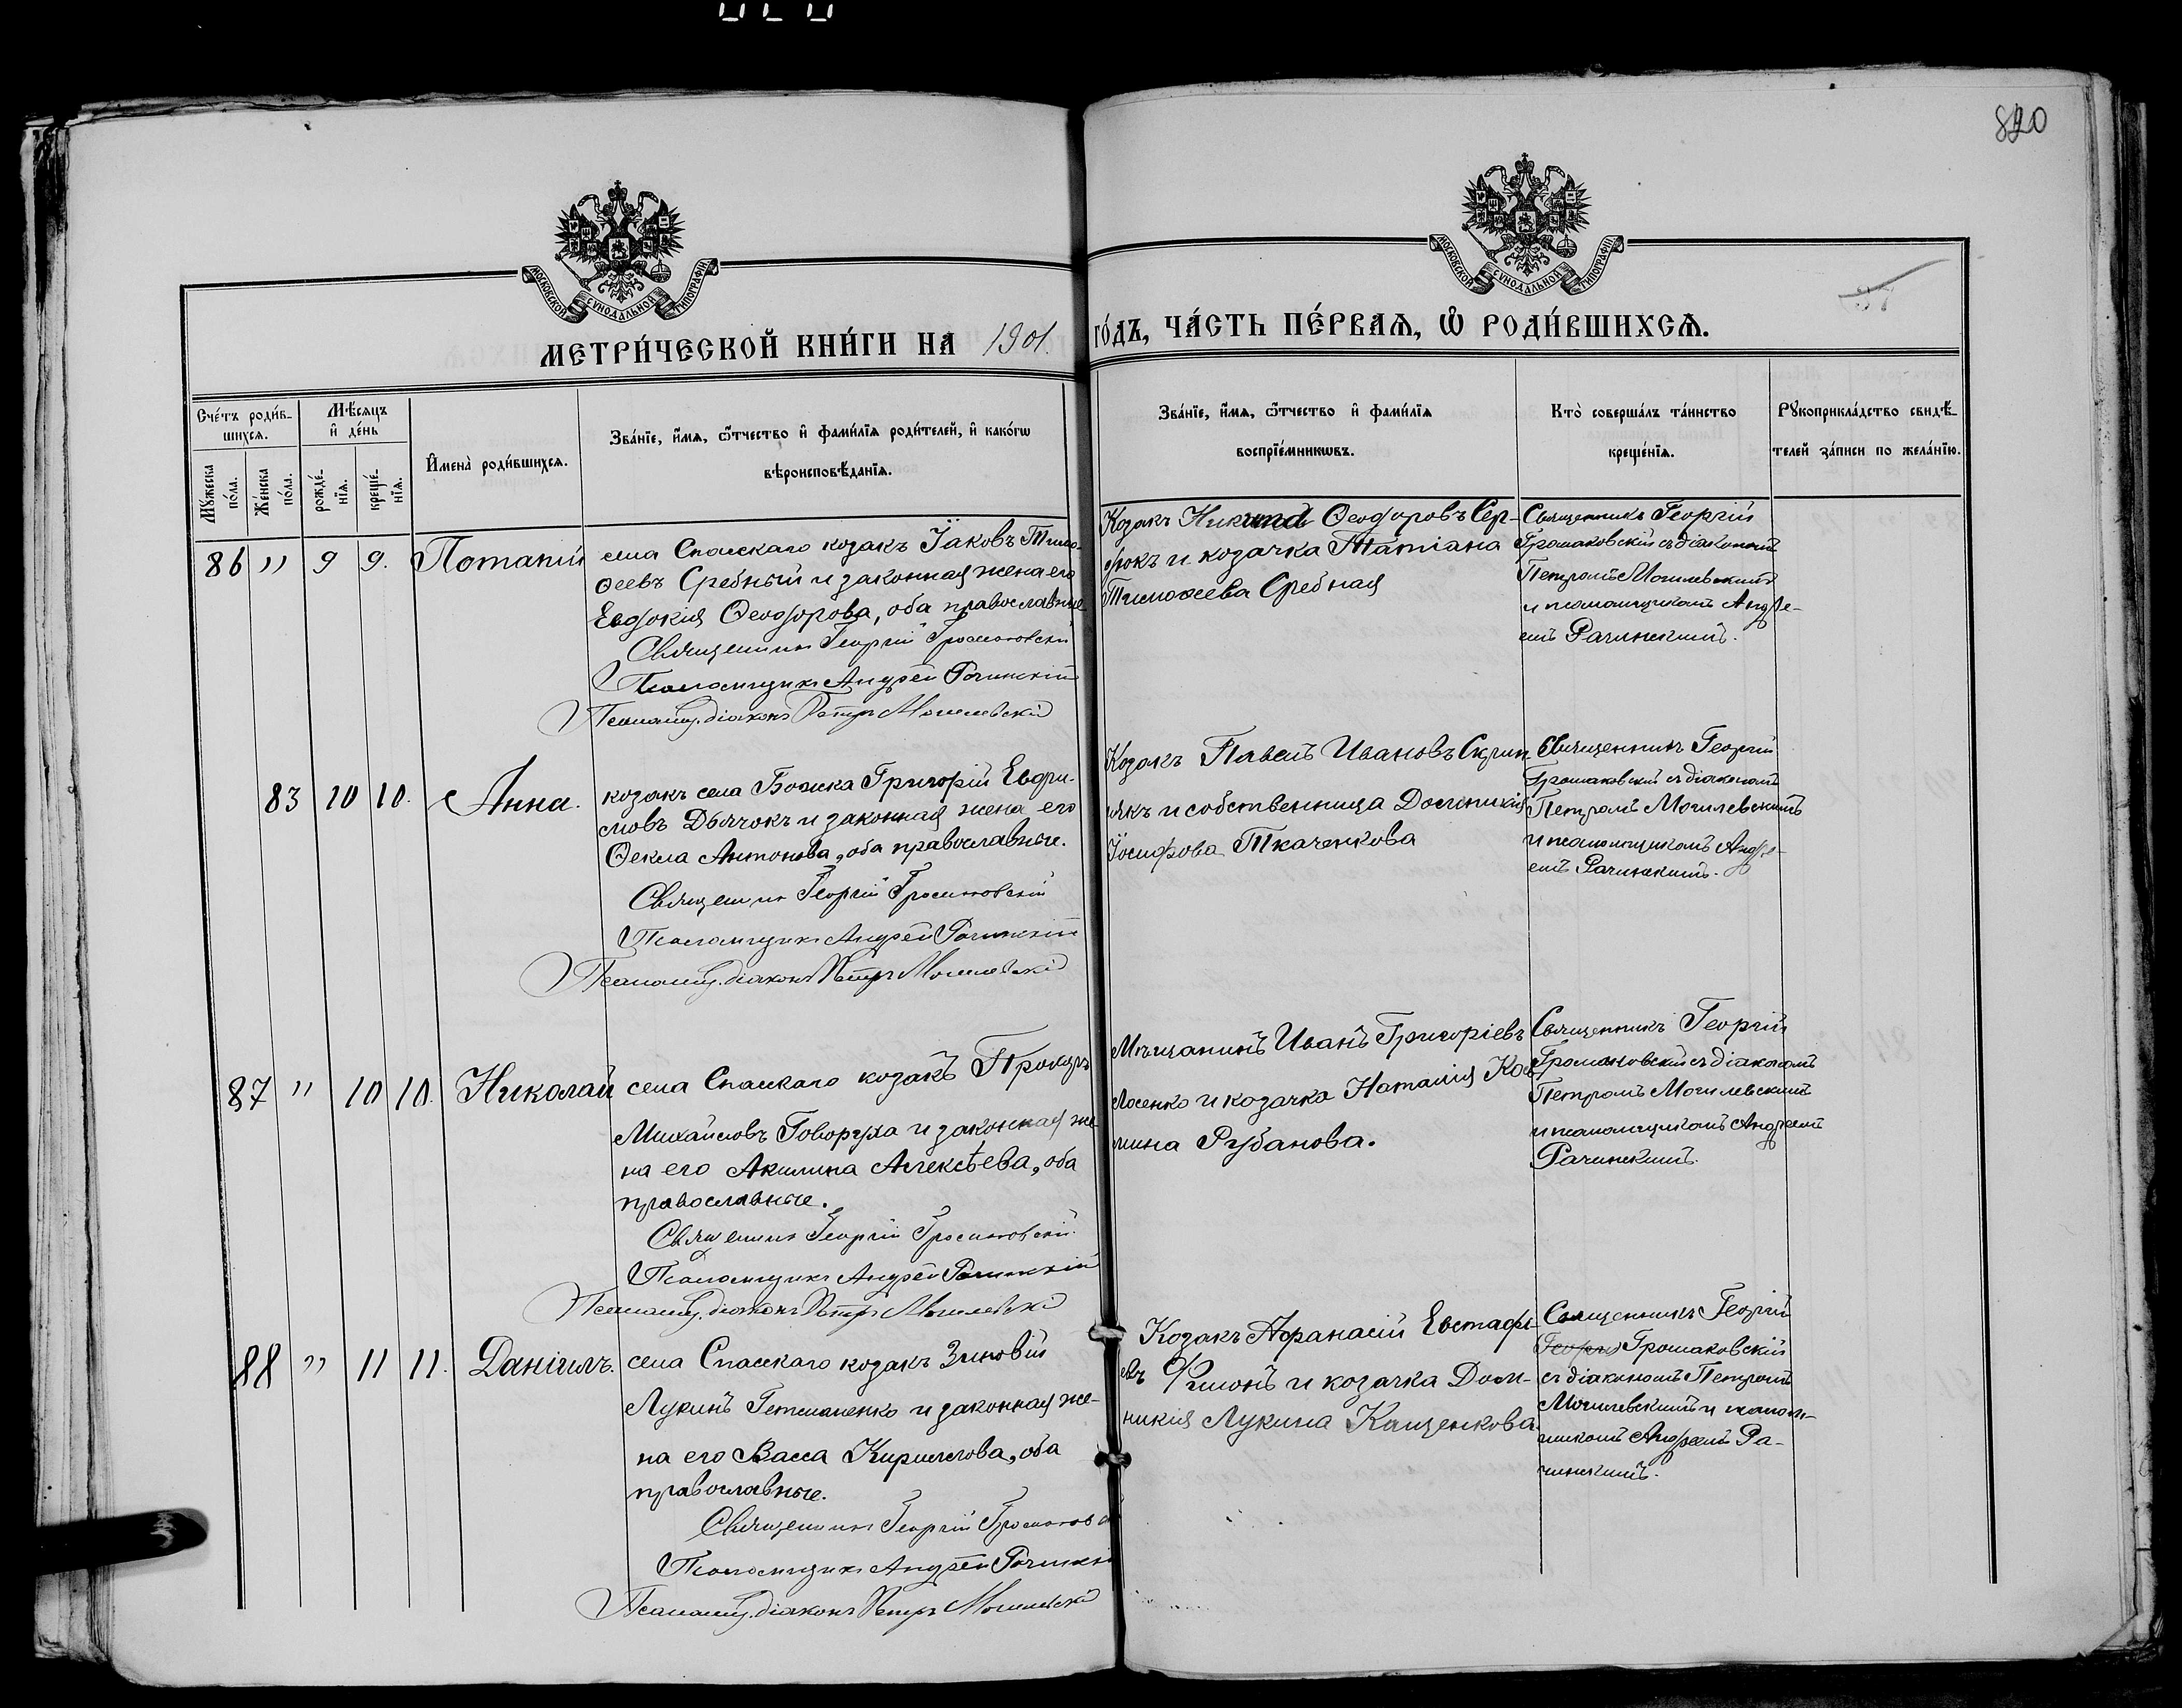 820
МОСКОВСКОЙ СѴНОДАЛЬНОЙ ТИПОГРАФІИ.
МОСКОВСКОЙ СѴНОДАЛЬНОЙ ТИПОГРАФІИ.
МЕТРИ́ЧЕСКОЙ КНИ́ГИ НА 1901. ГО́ДЪ, ЧА́СТЬ ПЕ́РВАѦ, Ѡ҆ РОДИ́ВШИХСѦ.
Сче́тъ роди́в-
шихсѧ.
Мꙋ́жеска
по́ла.
Же́нска
по́ла.
Мѣ́сѧцъ
и҆ де́нь
рожде́-
нїѧ.
креще́-
нїѧ.
И҆мена̀ роди́вшихсѧ.
Зва́нїе, и҆́мѧ, ѻ҆́тчество и҆ фами́лїѧ роди́телей, и҆ како́гѡ
вѣроисповѣ́данїѧ.
Зва́нїе, и҆́мѧ, ѻ҆́тчество и҆ фами́лїѧ
воспрїе́мникѡвъ.
Кто̀ соверша́лъ та́инство
креще́нїѧ.
Рꙋкоприкла́дство свидѣ́-
телей за́писи по жела́нїю.
86 " 9 9. Потапій
села Спасскаго козакъ Іаковъ Тимо-
ѳеевъ Сребный и законная жена его
Евдокія Ѳеодорова, оба православные
Священникъ Георгій Громаковскій
Псаломщикъ Андрей Рачинскій
Псаломщ. діаконъ Петръ Могилевскій
Козакъ Ѳеодоровъ Сер-
дюкъ и козачка Татіана
Тимоѳеева Сребная
Священникъ Георгій
Громаковскій съ діакономъ
Петромъ Могилевскимъ
и псаломщикомъ Андре-
емъ Рачинскимъ.
83 10 10. Анна.
козакъ села Божка Григорій Евфи-
мовъ Дьячокъ и законная жена его
Ѳекла Антонова, оба православные.
Священникъ Георгій Громаковскій
Псаломщикъ Андрей Рачинскій
Псаломщ. діаконъ Петръ Могилевскій
Козакъ Павелъ Ивановъ Скрип-
някъ и собственница Домникія
Іосифова Ткаченкова
Священникъ Георгій
Громаковскій съ діакономъ
Петромъ Могилевскимъ
и псаломщикомъ Андре-
емъ Рачинскимъ.
87 " 10 10. Николай
села Спасскаго козакъ Прокопъ
Михайловъ Говоруха и законная же
на его Акилина Алексѣева, оба
православные.
Священникъ Георгій Громаковскій.
Псаломщикъ Андрей Рачинскій
Псаломщ. діаконъ Петръ Могилевскій
Мѣщанинъ Иванъ Григоріевъ
Лосенко и козачка Наталія Кос
мина Рубанова.
Священникъ Георгій
Громаковскій съ діакономъ
Петромъ Могилевскимъ
и псаломщикомъ Андреемъ
Рачинскимъ.
88 " 11 11. Даніилъ.
села Спасскаго козакъ Зиновій
Лукинъ Гетманенко и законная же-
на его Васса Кириллова, оба
православные.
Священникъ Георгій Громаковск
Псаломщикъ Андрей Рачински
Псаломщ. діаконъ Петръ Могилевскій
Козакъ Аѳанасій Евстафі-
евъ Филонъ и козачка Дом-
никія Лукина Кащенкова.
Священникъ Георгій
Георгій Громаковскій
съ діакономъ Петромъ
Могилевскимъ и псалом-
щикомъ Андреемъ Ра-
чинскимъ.